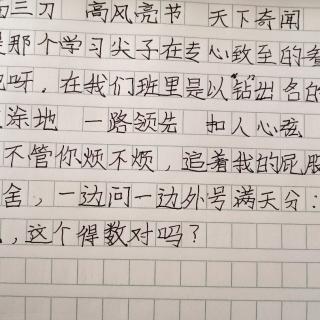 三刀 高风亮节 天下奇闻
是那个学习尖子在专心致至的看
呀，在我们班里是以"钻"出名的
涂地 一路领先 扣人心弦
不管你烦不烦，追着我的屁股
舍，一边问一边外号满天分：
，这个得数对吗？